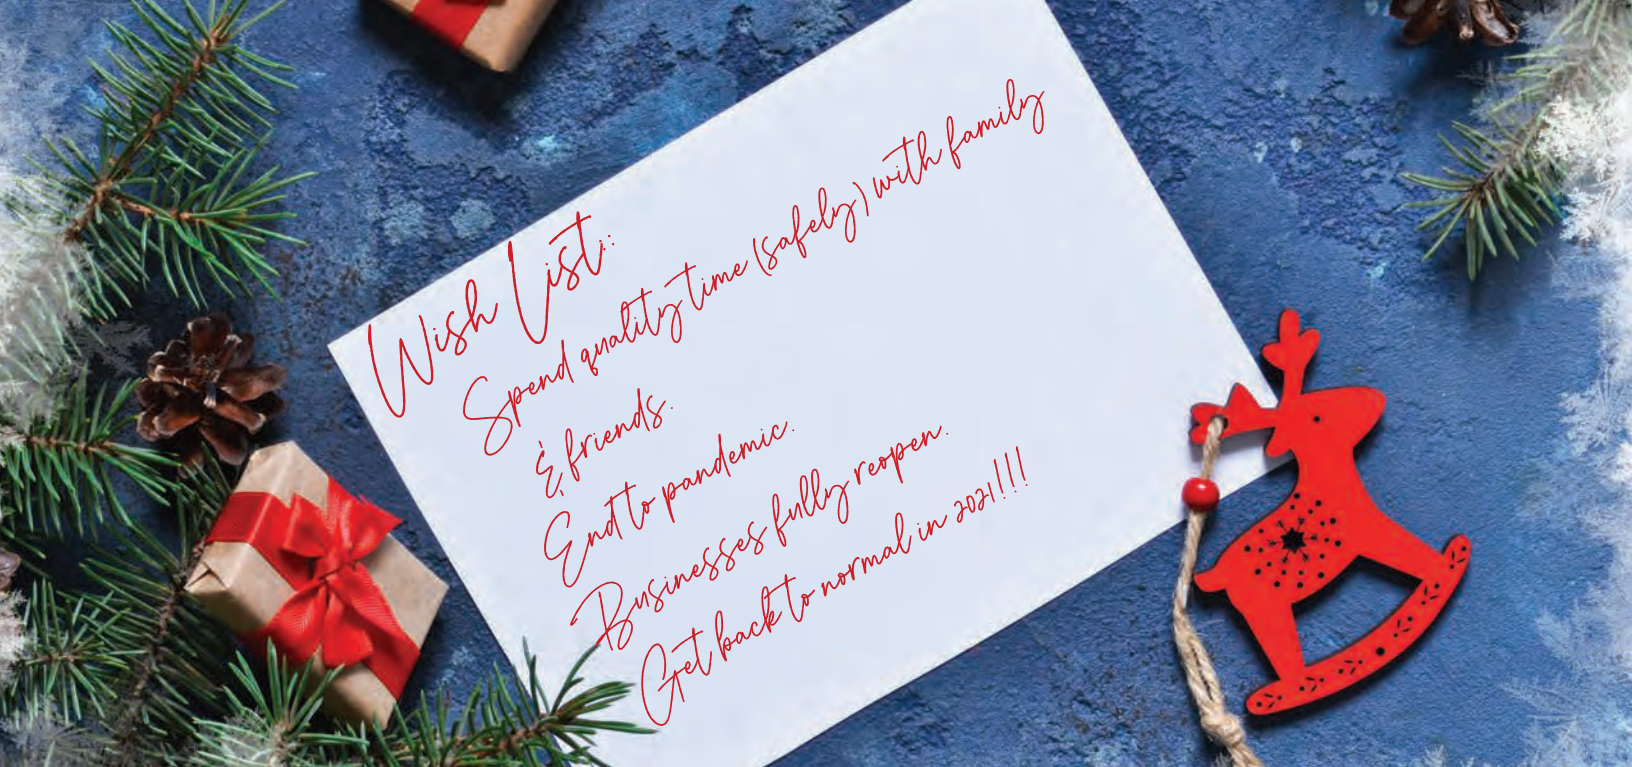 Wish List:
Spend quality time (safely) with family
& friends.
End to pandemic.
Businesses fully reopen.
Get back to normal in 2021!!!